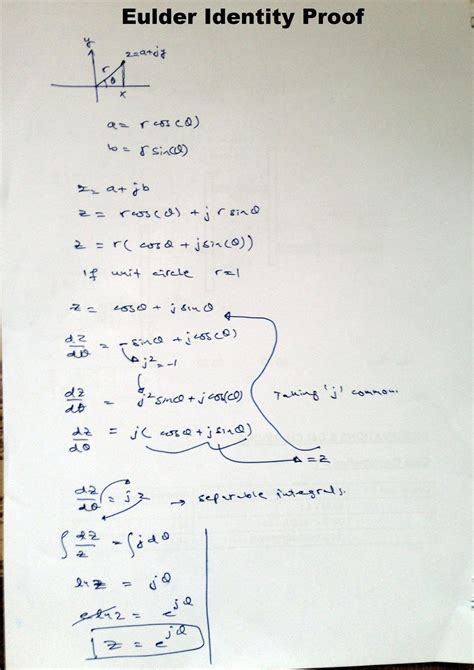 Eulder Identity Proof
y
z=a+jy
r
θ
x
a = r cos(θ)
b = r sin(θ)
z = a+jb
z = r cos(θ) + j r sinθ
z = r( cosθ + j sin(θ))
if unit circle r=1
z = cosθ + j sinθ
dz/dθ = -sinθ + j cos(θ)
j²=-1
dz/dθ = j² sinθ + j cos(θ)
Taking 'j' common.
dz/dθ = j( cosθ + j sinθ)
= z
dz/dθ = j z → separable integrals.
∫ dz/z = ∫ j dθ
ln z = jθ
e^ln z = e^jθ
z = e^jθ